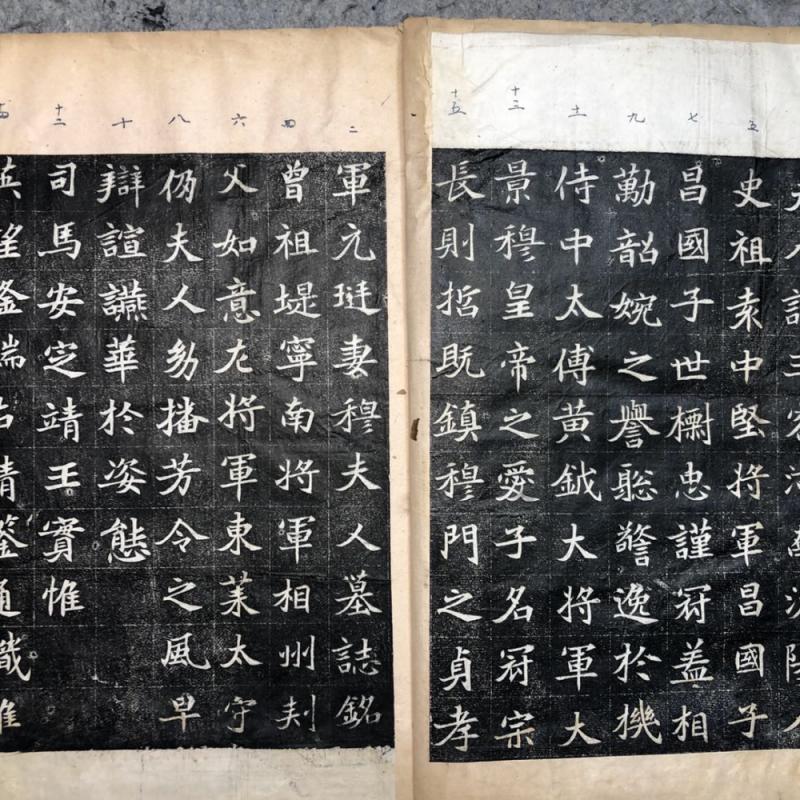 五
七
九
十一
十三
十五
史祖袁中堅將軍昌國子
昌國子世樹忠謹冠蓋相
勱韶婉之譽聡警逸於機
侍中太傅黃鉞大將軍大
景穆皇帝之愛子名冠宗
長則哲既鎮穆門之貞孝
二
四
六
八
十
十二
軍元珽妻穆夫人墓誌銘
曾祖堤寧南將軍相州刾
父如意左將軍東萊太守
夫人幼播芳令之風早
辯諠讌華於姿態
司馬安定靖王實惟